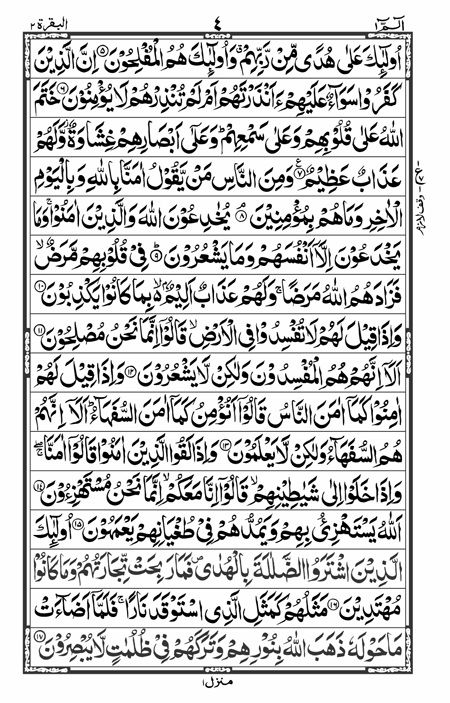 الٓمّٓ ١ ٤ البقرة ٢
اُولٰٓئِكَ عَلٰى هُدًى مِّنْ رَّبِّهِمْ ۗ وَاُولٰٓئِكَ هُمُ الْمُفْلِحُوْنَ ۝٥ اِنَّ الَّذِيْنَ
كَفَرُوْا سَوَآءٌ عَلَيْهِمْ ءَاَنْذَرْتَهُمْ اَمْ لَمْ تُنْذِرْهُمْ لَا يُؤْمِنُوْنَ ۝٦ خَتَمَ
اللّٰهُ عَلٰى قُلُوْبِهِمْ وَعَلٰى سَمْعِهِمْ ؕ وَعَلٰٓى اَبْصَارِهِمْ غِشَاوَةٌ ؗ وَّلَهُمْ
عَذَابٌ عَظِيْمٌ ۝٧ وَمِنَ النَّاسِ مَنْ يَّقُوْلُ اٰمَنَّا بِاللّٰهِ وَبِالْيَوْمِ
الْاٰخِرِ وَمَا هُمْ بِمُؤْمِنِيْنَ ۝٨ يُخٰدِعُوْنَ اللّٰهَ وَالَّذِيْنَ اٰمَنُوْا ۚ وَمَا
يَخْدَعُوْنَ اِلَّاۤ اَنْفُسَهُمْ وَمَا يَشْعُرُوْنَ ۝٩ فِيْ قُلُوْبِهِمْ مَّرَضٌ ۙ
فَزَادَهُمُ اللّٰهُ مَرَضًا ۚ وَلَهُمْ عَذَابٌ اَلِيْمٌ ۢ ۙ بِمَا كَانُوْا يَكْذِبُوْنَ ۝١٠
وَاِذَا قِيْلَ لَهُمْ لَا تُفْسِدُوْا فِي الْاَرْضِ ۙ قَالُوْۤا اِنَّمَا نَحْنُ مُصْلِحُوْنَ ۝١١
اَلَاۤ اِنَّهُمْ هُمُ الْمُفْسِدُوْنَ وَلٰكِنْ لَّا يَشْعُرُوْنَ ۝١٢ وَاِذَا قِيْلَ لَهُمْ
اٰمِنُوْا كَمَاۤ اٰمَنَ النَّاسُ قَالُوْۤا اَنُؤْمِنُ كَمَاۤ اٰمَنَ السُّفَهَآءُ ؕ اَلَاۤ اِنَّهُمْ
هُمُ السُّفَهَآءُ وَلٰكِنْ لَّا يَعْلَمُوْنَ ۝١٣ وَاِذَا لَقُوا الَّذِيْنَ اٰمَنُوْا قَالُوْۤا اٰمَنَّا ۖۚ
وَاِذَا خَلَوْا اِلٰى شَيٰطِيْنِهِمْ ۙ قَالُوْۤا اِنَّا مَعَكُمْ ۙ اِنَّمَا نَحْنُ مُسْتَهْزِءُوْنَ ۝١٤
اَللّٰهُ يَسْتَهْزِئُ بِهِمْ وَيَمُدُّهُمْ فِيْ طُغْيَانِهِمْ يَعْمَهُوْنَ ۝١٥ اُولٰٓئِكَ
الَّذِيْنَ اشْتَرَوُا الضَّلٰلَةَ بِالْهُدٰى ۪ فَمَا رَبِحَتْ تِّجَارَتُهُمْ وَمَا كَانُوْا
مُهْتَدِيْنَ ۝١٦ مَثَلُهُمْ كَمَثَلِ الَّذِي اسْتَوْقَدَ نَارًا ۚ فَلَمَّاۤ اَضَآءَتْ
مَا حَوْلَهٗ ذَهَبَ اللّٰهُ بِنُوْرِهِمْ وَتَرَكَهُمْ فِيْ ظُلُمٰتٍ لَّا يُبْصِرُوْنَ ۝١٧
منزل ١